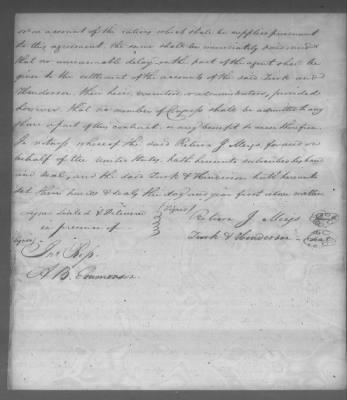 or on account of the rations which shall be supplied pursuant
to this agreement the same shall be immediately paid and
that no unreasonable delay on the part of the agent shall be
given to the settlement of the accounts of the said Turk and
Henderson their heirs, executors or administrators, provided
however that no member of Congress shall be admitted to any
share or part of this contract or any benefit to arise therefrom
In witness whereof the said Return J Meigs for and on
behalf of the United States, hath hereunto subscribed his hand
and seal, and the said Turk & Henderson hath hereunto
set their hands & seals the day and year first above written
signd sealed & Delivered
in presence of
(signed)
Return J. Meigs seal
Turk & Henderson seal
signed
Jno
A B